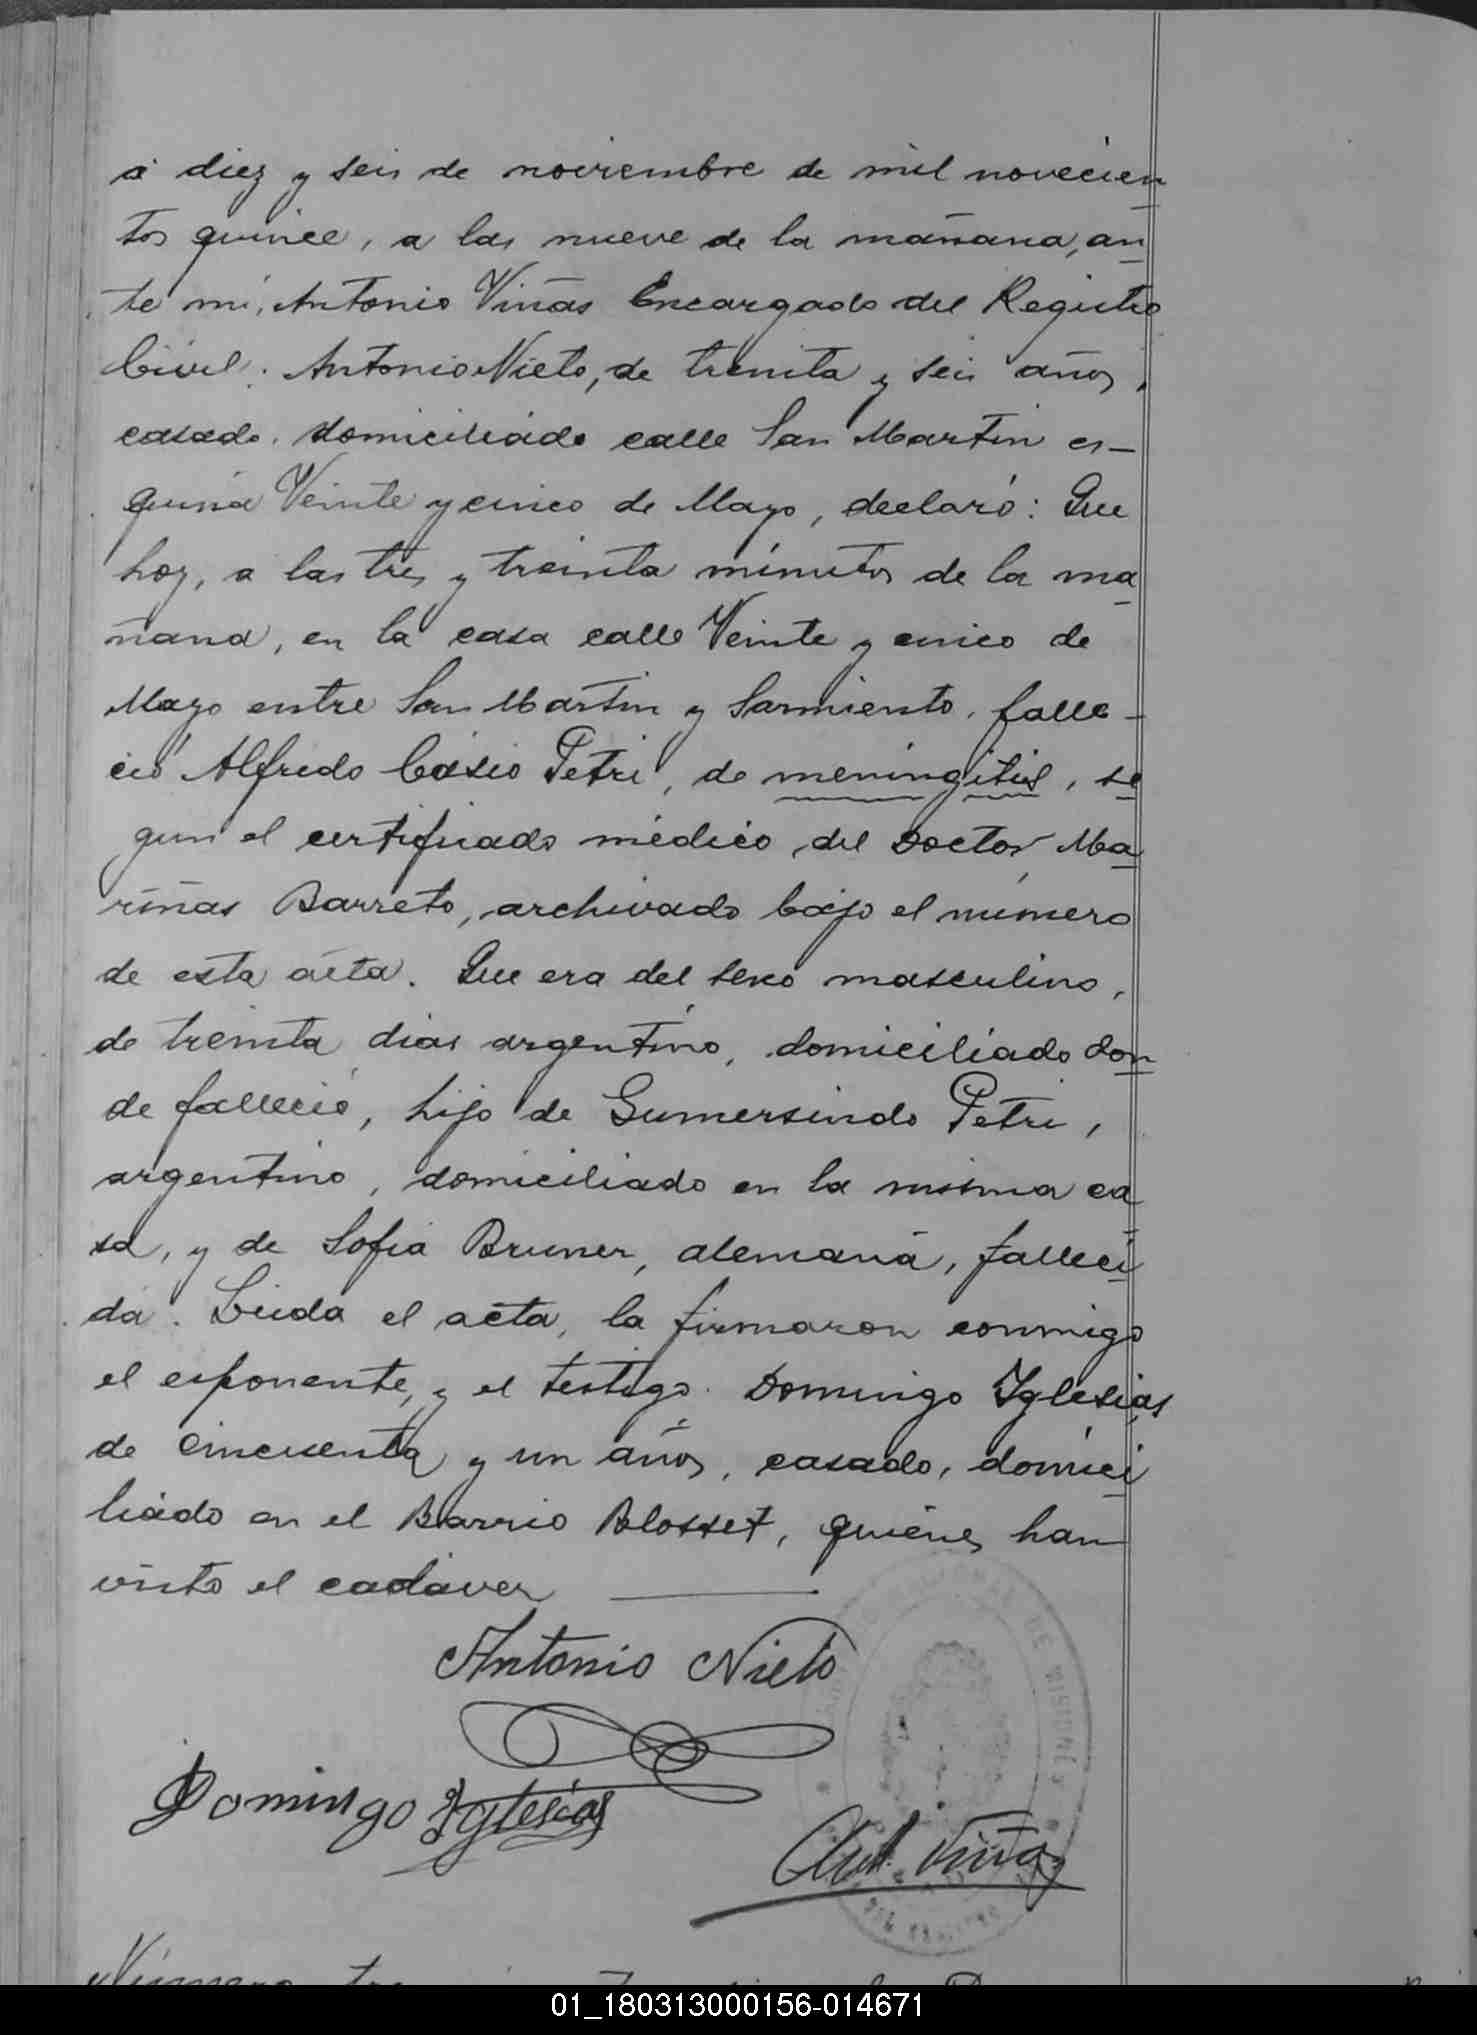 á diez y seis de noviembre de mil novecien
tos quince, a las nueve de la mañana, an
te mi, Antonio Viñas Encargado del Registro
Civil: Antonio Nieto, de treinta y seis años,
casado, domiciliado calle San Martin es-
quina Veinte y cinco de Mayo, declaró: Que
hoy, a las tres y treinta minutos de la ma
ñana, en la casa calle Veinte y cinco de
Mayo entre San Martin y Sarmiento, falle-
ció Alfredo Casio Petri, de meningitis, se
gun el certificado médico del Doctor Ma
riñas Barreto, archivado bajo el número
de esta acta. Que era del sexo masculino,
de treinta dias argentino, domiciliado don
de falleció, hijo de Gumersindo Petri,
argentino, domiciliado en la misma ca
sa, y de Sofia Bruner, alemana, falleci
da. Leida el acta, la firmaron conmigo
el exponente, y el testigo Domingo Iglesias
de cincuenta y un años, casado, domici
liado en el Barrio Blosset, quienes han
visto el cadáver
Antonio Nieto
Domingo Iglesias
Ant. Viñas
DE MISIONES
Número
01_180313000156-014671